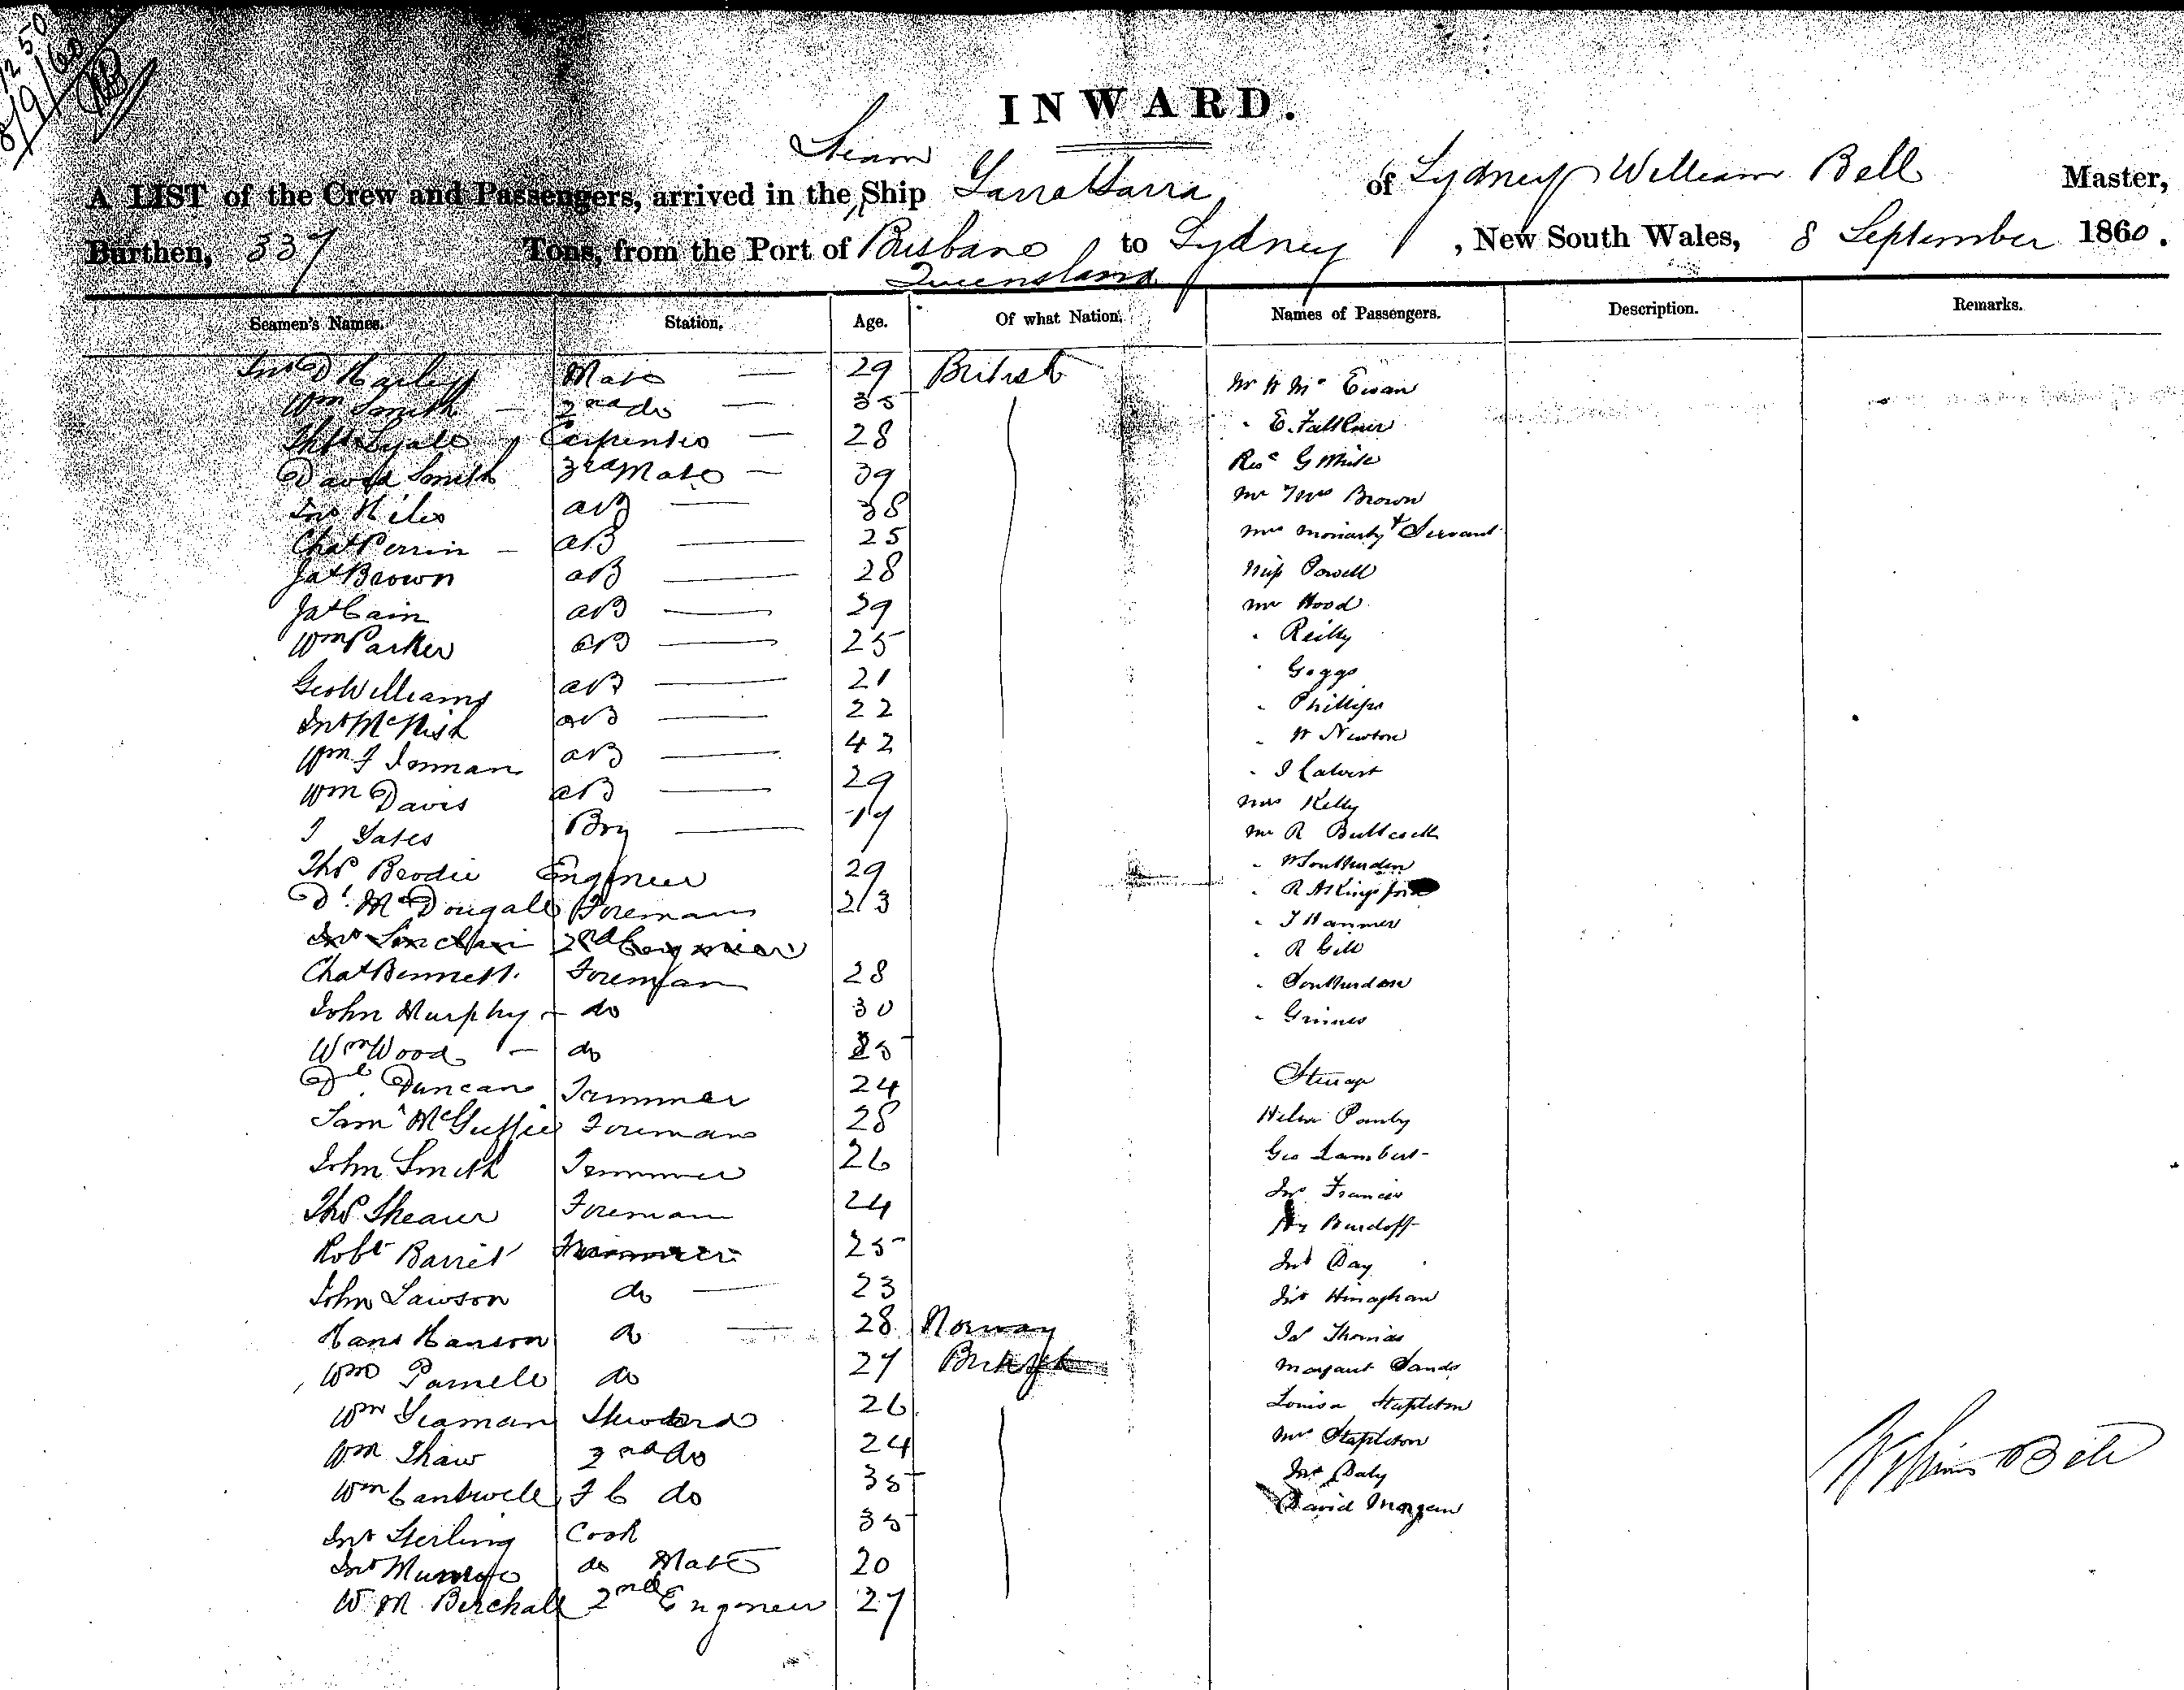 12 50
8/9/60
INWARD.
Steam
A LIST of the Crew and Passengers, arrived in the Ship Yarra Yarra of Sydney William Bell Master,
Burthen, 337 Tons, from the Port of Brisbane to Sydney, New South Wales, 8 September 1860.
Queensland
Seamen's Names. Station. Age. Of what Nation. Names of Passengers. Description. Remarks.
Jno D Mate — 29 British
Wm Smith — 2nd do — 35
Lyall Carpenter — 28
David Smith 3rd Mate — 39
Jno Hiles AB — 38
Chas Perrin — AB — 25
Jas Brown AB — 28
Jas Cain AB — 29
Wm Parker AB — 25
Geo Williams AB — 21
Jno McNish AB — 22
Wm J Inman AB — 42
Wm Davis AB — 29
J Yates Boy — 17
Thos Brodie Engineer 29
D. McDougall Foreman 23
Jno Sinclair 2nd Engineer
Chas Bennett. Foreman 28
John Murphy — do 30
Wm Wood — do 25
Dl. Duncan Trimmer 24
Saml McGuffie Foreman 28
John Smith Trimmer 26
Thos Shearer Foreman 24
Robt Barret Trimmer 25
John Lawson do — 23
Hans Hanson do — 28 Norway
Wm Parnell do 27 British
Wm Seaman Steward 26
Wm Shaw 2nd do 24
Wm Cantwell F C do 35
Jno Sterling Cook 35
Jno Munroe do Mate 20
W M Birchall 2nd Engineer 27
Mr W Mc Ewan
" E. Falkner
Revd G White
Mr & Mrs Brown
Mrs Moriarty & Servant
Miss Powell
Mr Hood
" Reilly
" Goggs
" Phillips
" W Newton
" J Calvert
Mrs Kelly
Mr R Bullcock
" W Southerden
" R A Kingsford
" J Hanmer
" R Gill
" Southerden
" Grimes
Steerage
Helen
Geo Lambert
Jno Francis
Hy Burdoff
Jno Day
Jno Hinaghan
Jas Thomas
Margaret Sands
Louisa Stapleton
Mrs Stapleton
Jno Daly
David Morgan
William Bell